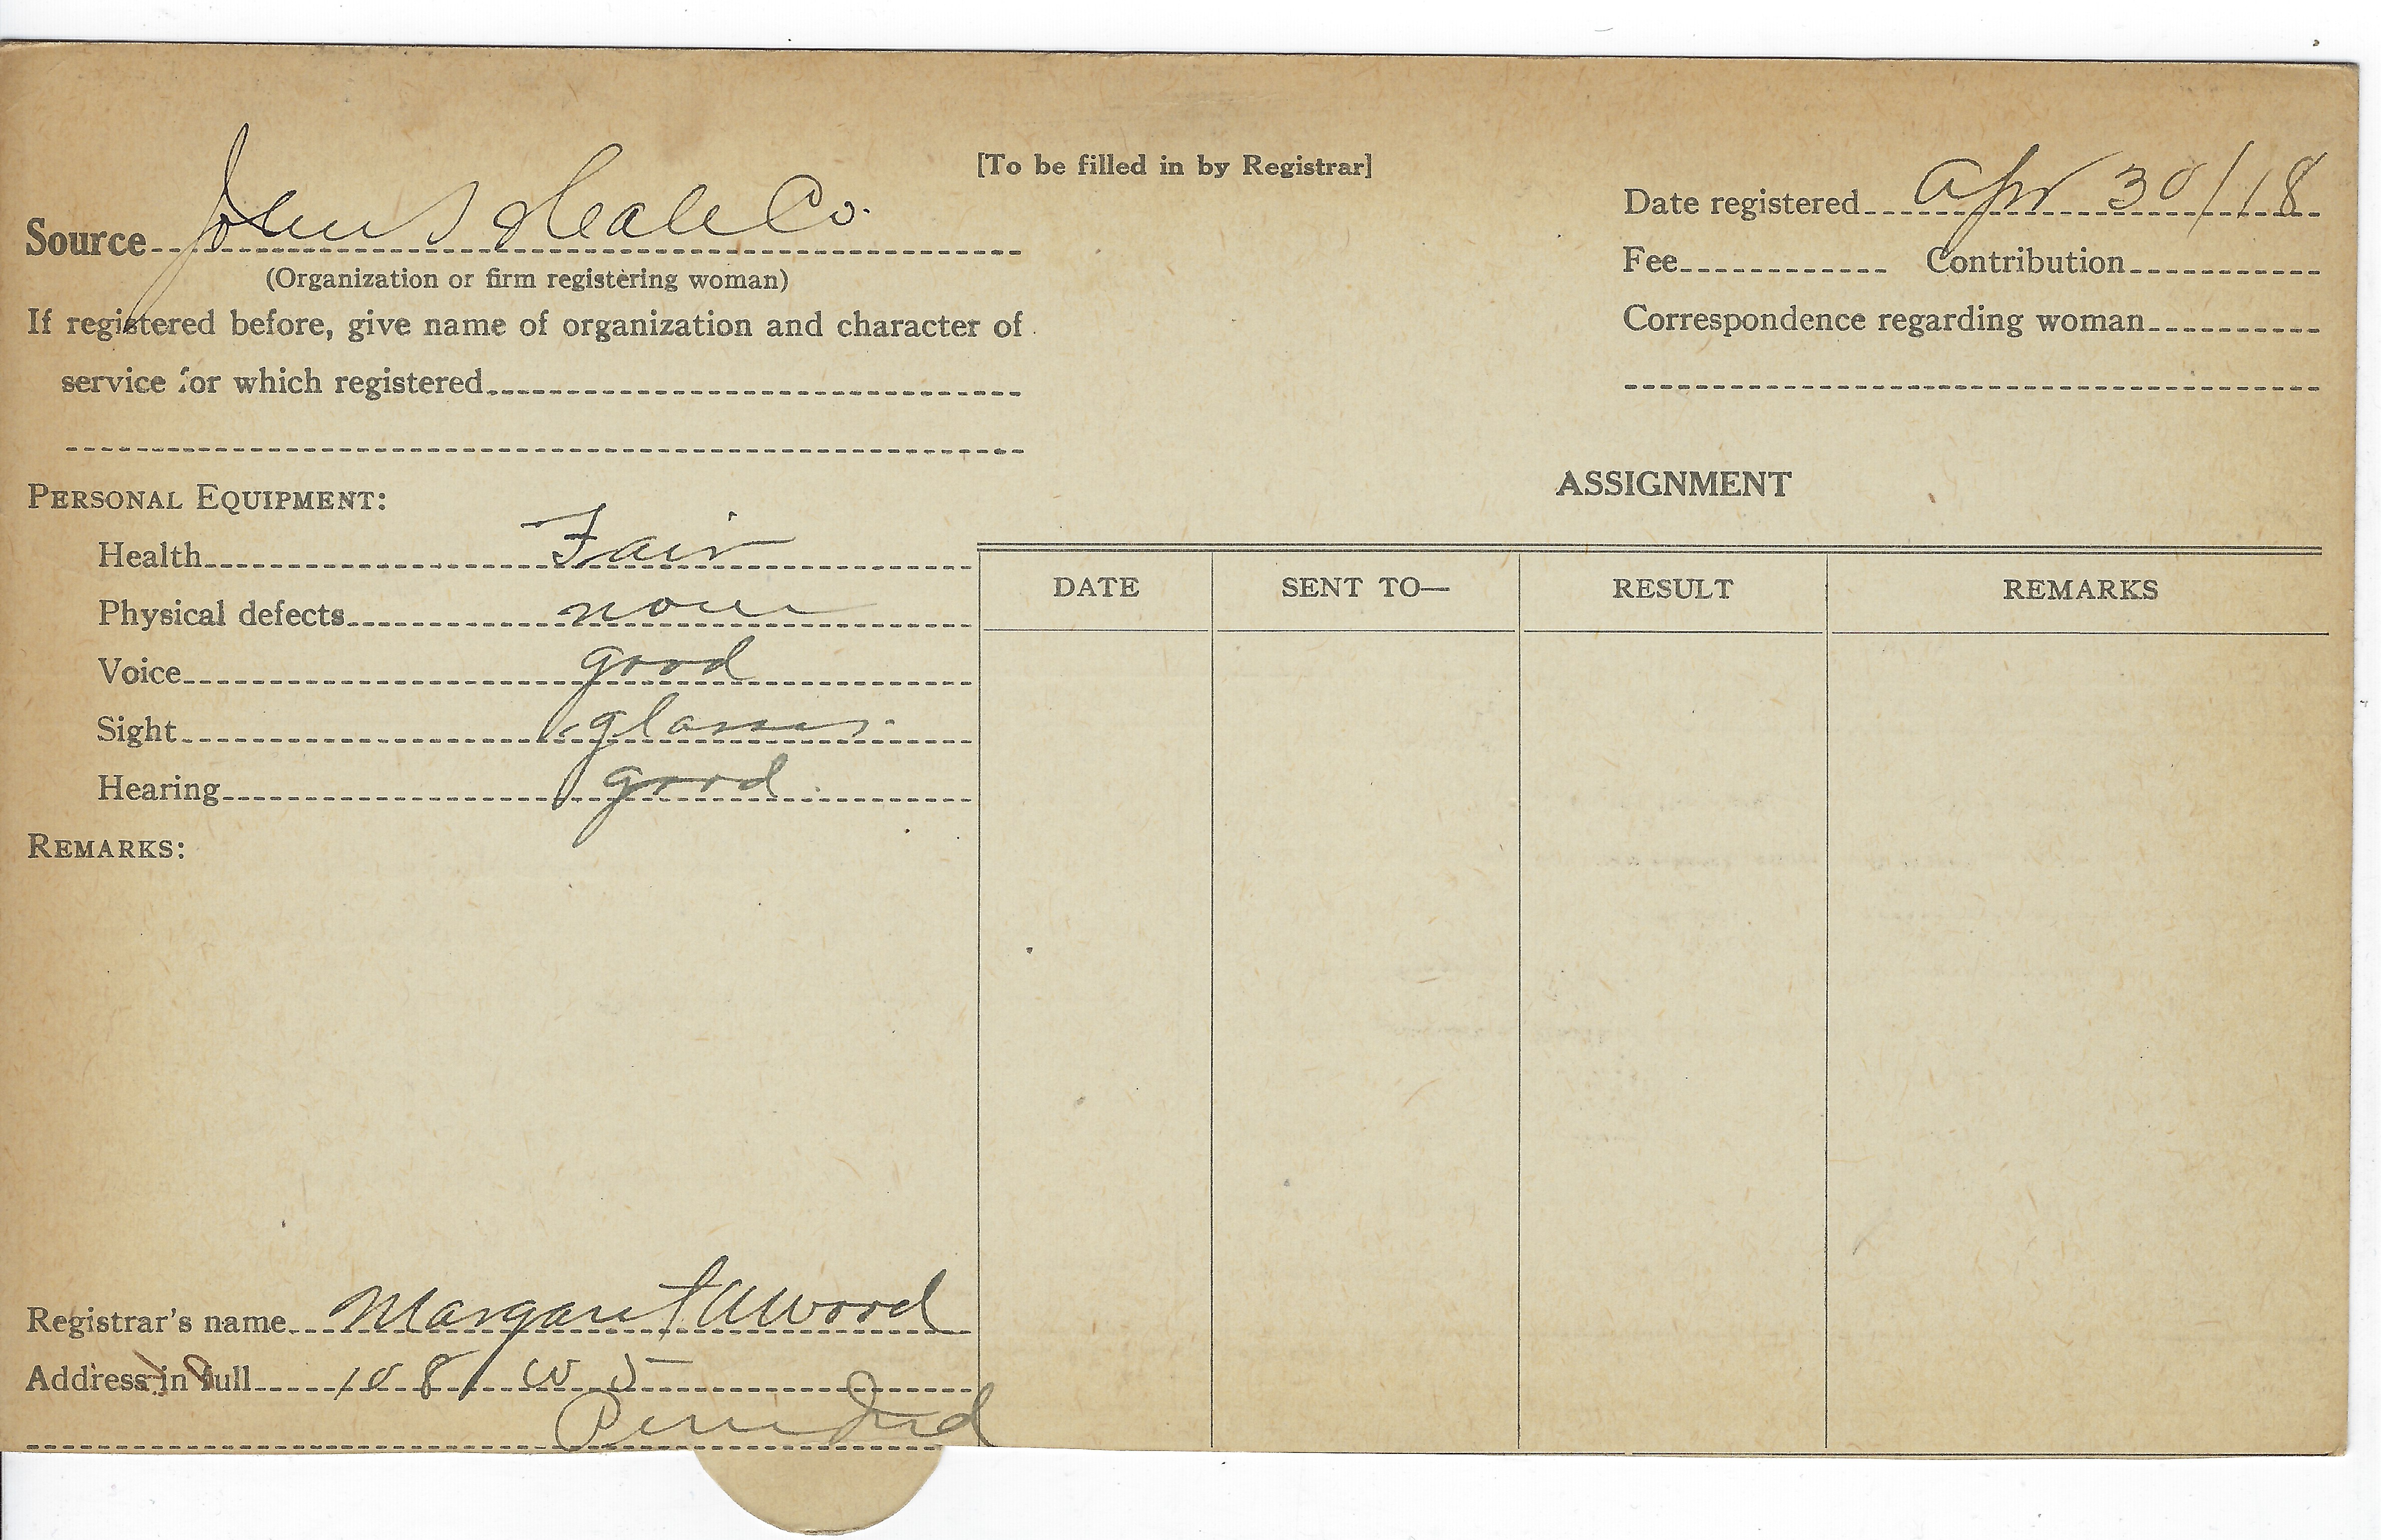 [To be filled in by Registrar]
Source John S Hale Co.
(Organization or firm registering woman)
If registered before, give name of organization and character of
service for which registered
Date registered Apr 30/18
Fee Contribution
Correspondence regarding woman
PERSONAL EQUIPMENT:
Health Fair
Physical defects none
Voice good
Sight glasses.
Hearing good
REMARKS:
ASSIGNMENT
DATE SENT TO— RESULT REMARKS
Registrar's name Margaret Atwood
Address in full 108 W 5
Peru Ind